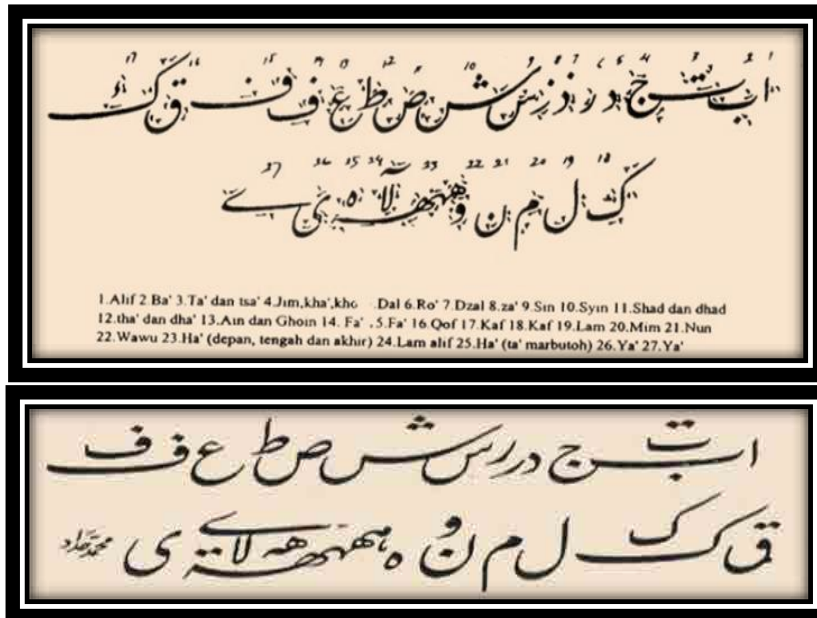 ا ب ت ج د ر ذ ز س ش ص ط ع ف ف ق ک
ک ل م ن و ههه لا ه ی ے
1.Alif 2 Ba' 3.Ta' dan tsa' 4.Jim,kha',kho .Dal 6.Ro' 7.Dzal 8.za' 9.Sin 10.Syin 11.Shad dan dhad
12.tha' dan dha' 13.Ain dan Ghoin 14. Fa' .5.Fa' 16.Qof 17.Kaf 18.Kaf 19.Lam 20.Mim 21.Nun
22.Wawu 23.Ha' (depan, tengah dan akhir) 24.Lam alif 25.Ha' (ta' marbutoh) 26.Ya' 27.Ya'
ا ب ت ج د ر ر س ش ص ط ع ف ف
ق ک ک ل م ن و ه ههه لا ة ے ی